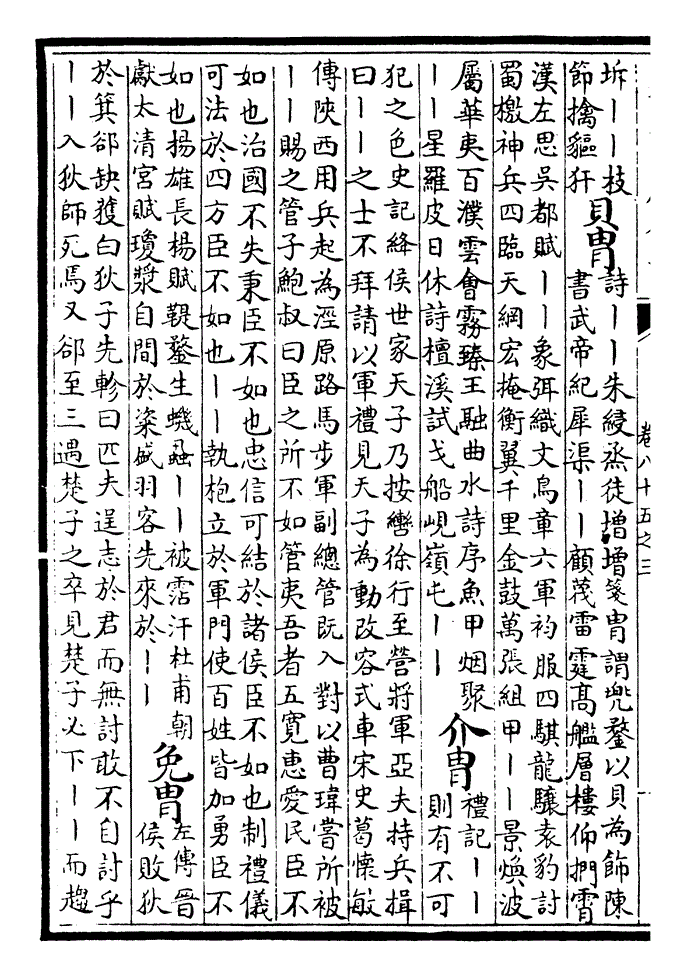 卷八十五之三
坼——枝
節擒貙犴
貝冑
詩——朱綅烝徒增增箋冑謂兜鍪以貝為飾陳
書武帝紀犀渠——顧茂雷霆高艦層樓仰捫霄
漢左思吳都賦——象弭織文鳥章六軍袀服四騏龍驤袁豹討
蜀檄神兵四臨天網宏掩衡翼千里金鼓萬張組甲——景煥波
屬華夷百濮雲會霧臻王融曲水詩序魚甲烟聚
——星羅皮日休詩檀溪試戈船峴嶺屯——
介冑
禮記——
則有不可
犯之色史記絳侯世家天子乃按轡徐行至營將軍亞夫持兵揖
曰——之士不拜請以軍禮見天子為動改容式車宋史葛懷敏
傳陝西用兵起為涇原路馬步軍副總管既入對以曹瑋嘗所被
——賜之管子鮑叔曰臣之所不如管夷吾者五寬惠愛民臣不
如也治國不失秉臣不如也忠信可結於諸侯臣不如也制禮儀
可法於四方臣不如也——執枹立於軍門使百姓皆加勇臣不
如也揚雄長楊賦鞮鍪生蟣蝨——被霑汗杜甫朝
獻太清宮賦瓊漿自間於粢盛羽客先來於——
免冑
左傳晉
侯敗狄
於箕郤缺獲白狄子先軫曰匹夫逞志於君而無討敢不自討乎
——入狄師死焉又郤至三遇楚子之卒見楚子必下——而趨